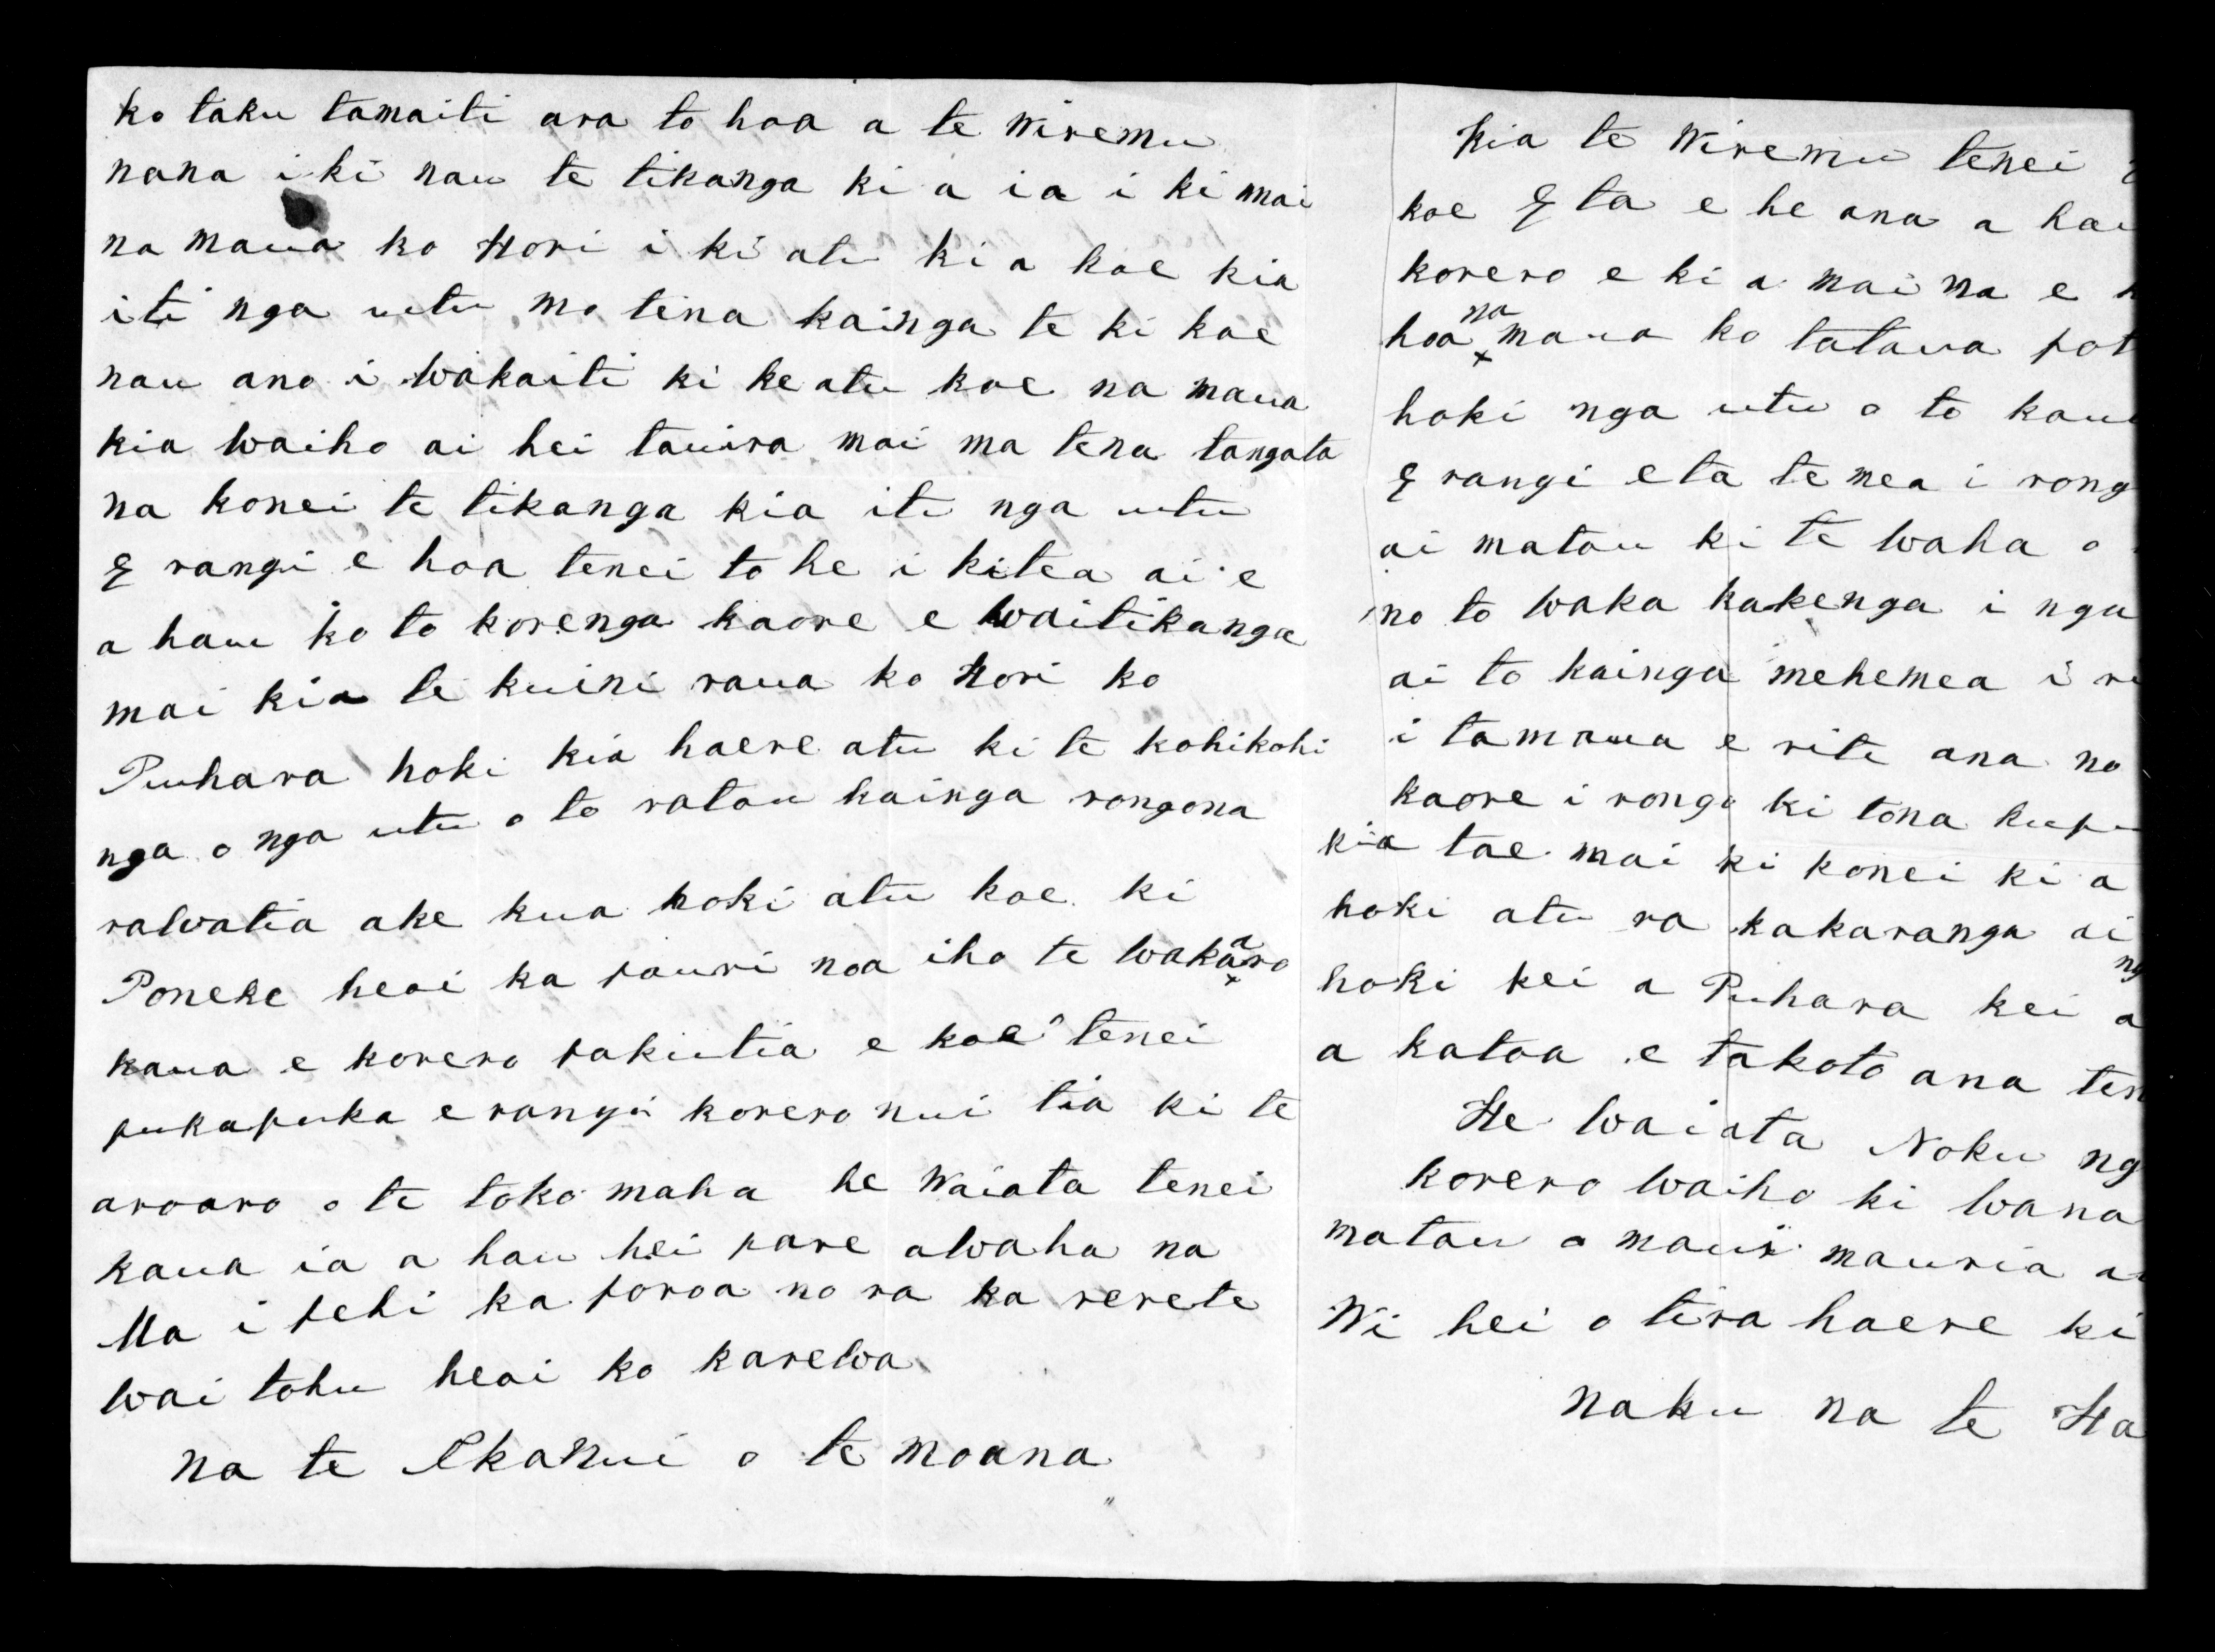 ko taku tamaiti ara to hoa a te Wiremu
nana i ki nau te tikanga ki a ia i ki mai
na maua ko Hori i ki atu ki a koe kia
iti nga utu mo tena kainga te ki koe
nau ano i wakaiti ki ke atu koe na maua
kia waiho ai hei tauira mai ma tena tangata
na konei te tikanga kia iti nga utu
E rangi e hoa tenei to he i kitea ai e
a hau ko to korenga kaore e waitikanga
mai kia te kuini raua ko Hori ko
Puhara hoki kia haere atu ki te kohikohi
nga o nga utu o to ratou kainga rongona
rawatia ake kua hoki atu koe ki
Poneke heoi ka pouri noa iho te wakaaro
kaua e korero pakutia e koe tenei
pukapuka e rangi korero nui tia ki te
aroaro o te toko maha he Waiata tenei
kaua ia a hau hei pare awaha na
Ma i pehi ka poroa no ra ka rerete
wai tohu heoi ko karewa
na te Ikanui o te moana
Kia te Wiremu tenei
koe E ta e he ana a hau
korero e ki a mai na e
hoa na maua ko tataua pot
hoki nga utu o to kau
E rangi e ta te mea i rong
ai matou ki te waha o
no to waka kakenga i nga
ai to kainga mehemea i ri
i ta maua e rite ana no
kaore i rongo ki tona kupu
kia tae mai ki konei ki a
hoki atu ra kakaranga ai
hoki kei a Puhara kei a ng
a katoa e takoto ana ten
He waiata Noku ng
korero waiho ki wana
matau o maui mauria a
Wi hei o tira haere ki
naku na te Ha